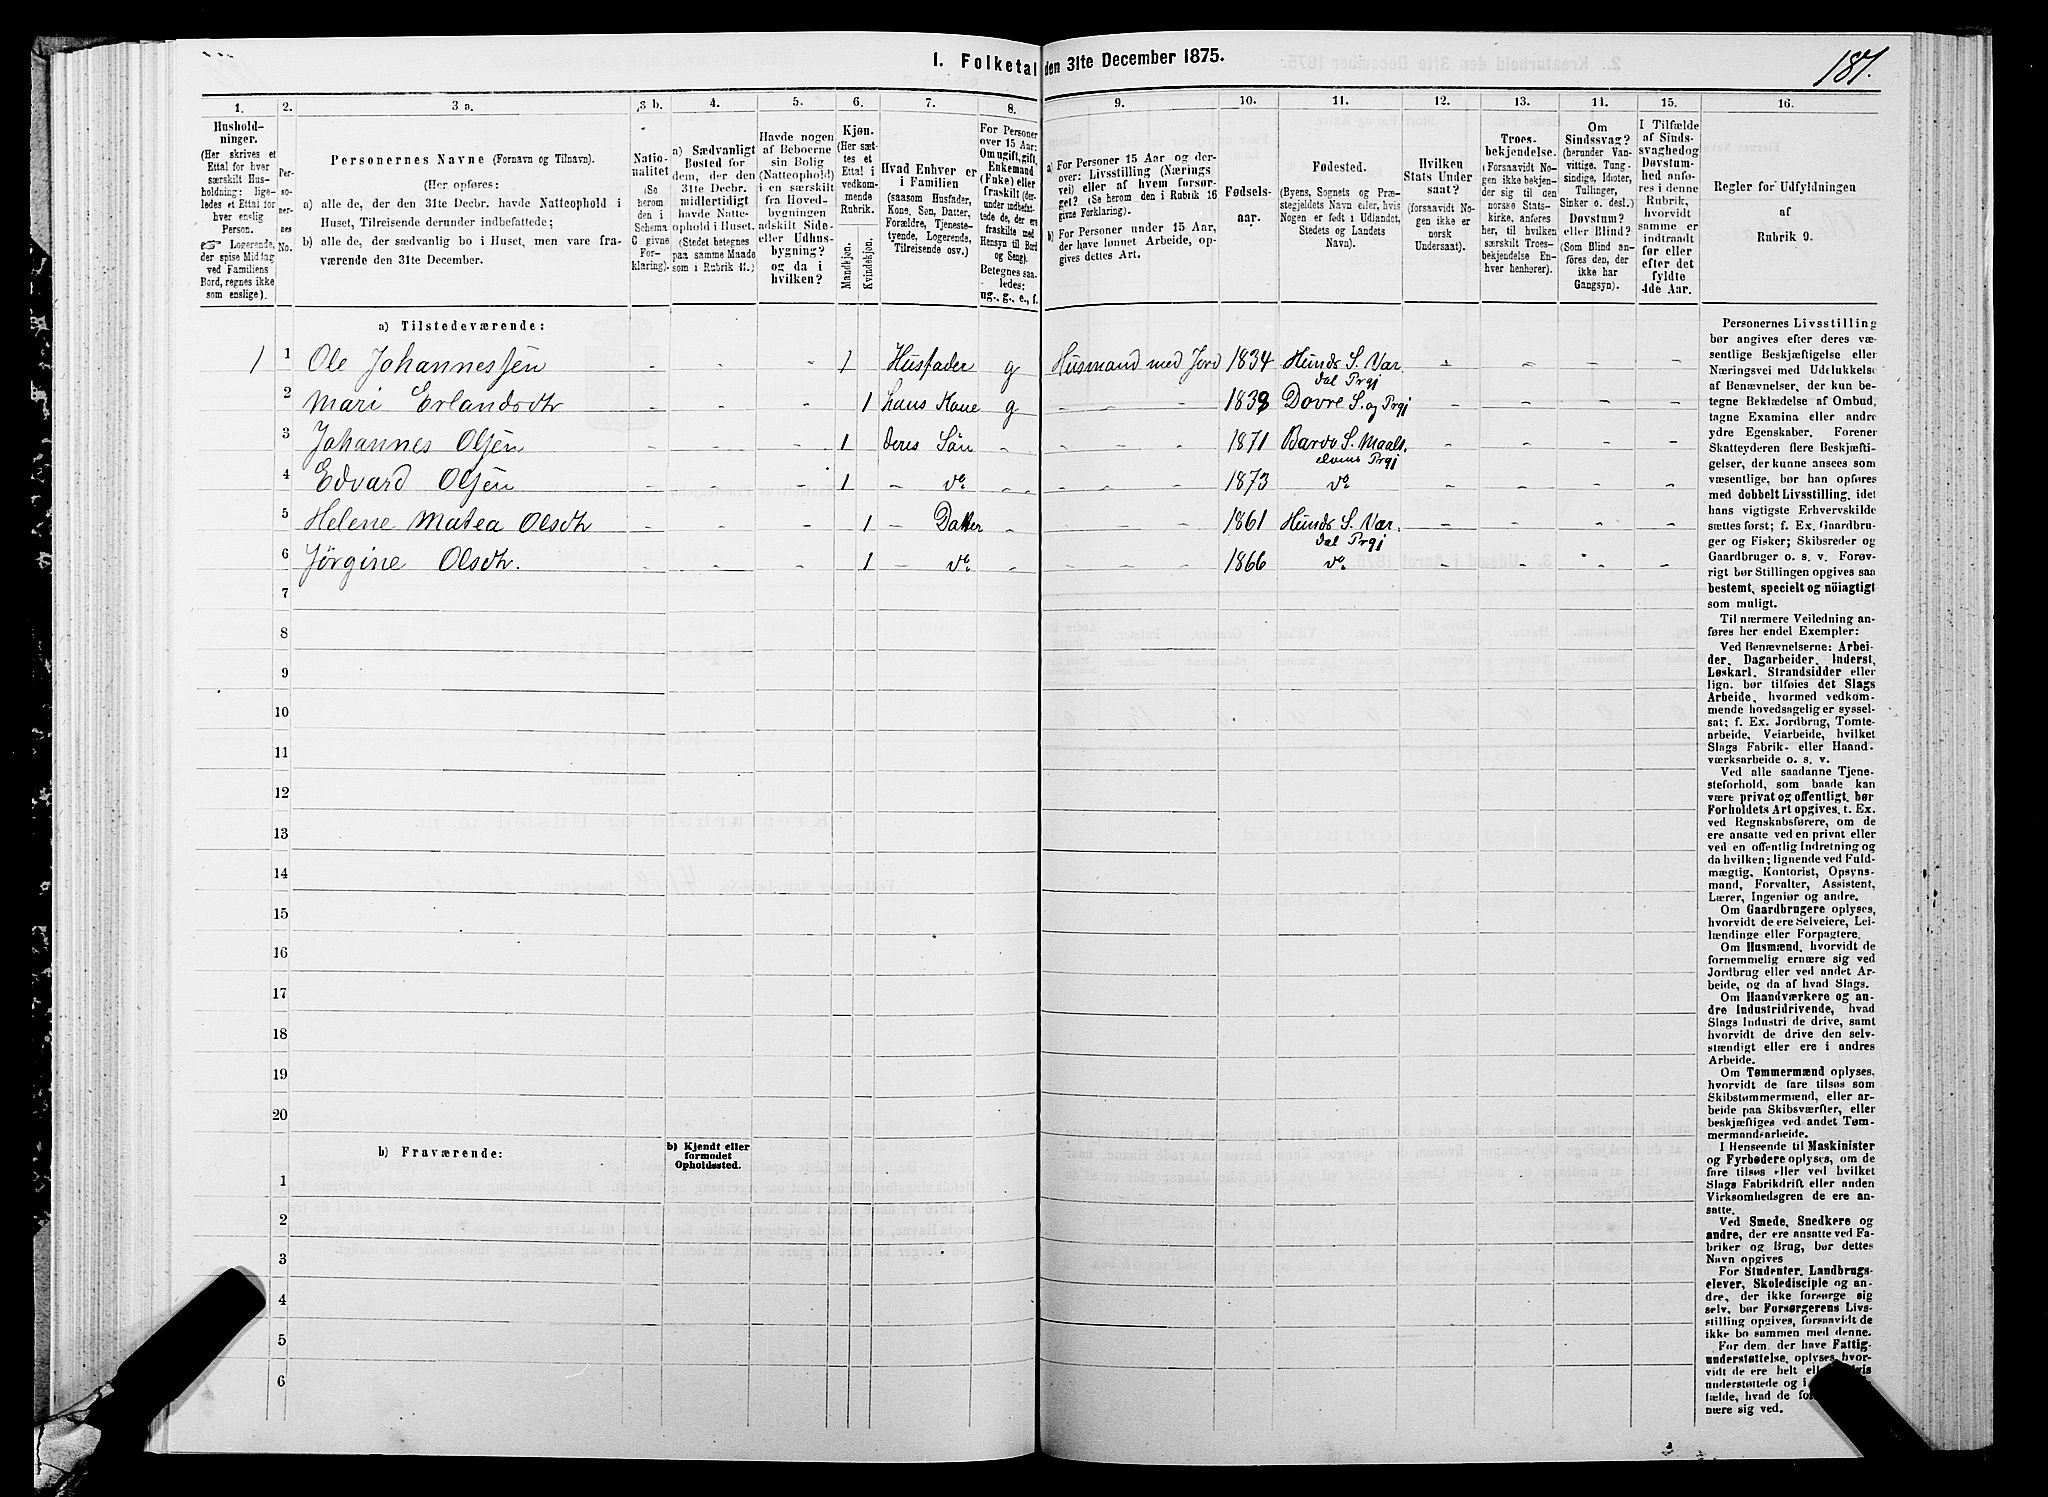 1. Folketal den 31te December 1875.
187.
1.
2.
3 a.
3 b.
4.
5.
6.
7.
8.
9.
10.
11.
12.
13.
11.
15.
16.
Hushold-
ninger.
(Her skrives et
Ettal for hver
særskilt Hus-
holdning; lige-
ledes et Ettal for
hver enslig
Person.
☞ Logerende,
der spise Middag
ved Familiens
Bord, regnes ikke
som enslige).
Per-
so-
ner-
nes
No.
Personernes Navne (Fornavn og Tilnavn).
(Her opføres:
a) alle de, der den 31te Decbr. havde Natteophold i
Huset, Tilreisende derunder indbefattede;
b) alle de, der sædvanlig bo i Huset, men vare fra-
værende den 31te December.
Natio-
nalitet
(Se
herom
den i
Schema
C givne
For-
klaring).
a) Sædvanligt
Bosted for
dem, der den
31te Decbr.
midlertidigt
havde Natte-
ophold i Huset.
(Stedet betegnes
paa samme Maade
som i Rubrik 11.)
Havde nogen
af Beboerne
sin Bolig
(Natteophold)
i en særskilt
fra Hoved-
bygningen
adskilt Side-
eller Udhus-
bygning?
og da i
hvilken?
Kjøn.
(Her sæt-
tes et
Ettal i
vedkom-
mende
Rubrik.
Mandkjøn.
Kvindekjøn.
Hvad Enhver er
i Familien
(saasom Husfader,
Kone, Søn, Datter,
Forældre, Tjeneste-
tyende, Logerende,
Tilreisende osv.)
For Personer
over 15 Aar:
Om ugift, gift,
Enkemand
(Enke) eller
fraskilt (der-
under indbefat-
tede de, der ere
fraskilte med
Hensyn til Bord
og Seng).
Betegnes saa-
ledes:
ug., g., e., f.
a) For Personer 15 Aar og der-
over: Livsstilling (Nærings
vei) eller af hvem forsør-
get? (Se herom den i Rubrik 16
givne Forklaring).
b) For Personer under 15 Aar,
der have lønnet Arbeide, op-
gives dettes Art.
Fødsels-
aar.
Fødested.
(Byens, Sognets og Præ-
stegjeldets Navn eller, hvis
Nogen er født i Udlandet,
Stedets og Landets
Navn).
Hvilken
Stats Under
saat?
(forsaavidt No-
gen ikke er
norsk
Undersaat).
Troes-
bekjendelse.
(Forsaavidt No-
gen ikke bekjen-
der sig til den
norske Stats-
kirke, anføres
her, til hvilken
særskilt Troes-
bekjendelse En-
hver henhører).
Om
Sindssvag?
(herunder Van-
vittige, Tung-
sindige, Idioter,
Tullinger,
Sinker o. desl.)
Døvstum?
eller Blind?
(Som Blind an-
føres den, der
ikke har
Gangsyn).
I Tilfælde
af Sinds-
svaghed og
Døvstum-
hed anfø-
res i denne
Rubrik,
hvorvidt
samme er
indtraadt
før eller
efter det
fyldte
4de Aar.
Regler for Udfyldningen
af
Rubrik 9.
a) Tilstedeværende:
1 1 Ole Johannessen - - - 1 Husfader g Husmand med Jord 1834 Hunds S. Vær.
dal Prgj - - - -
2 Mari Erlandsdtr - - - 1 hans Kone g - - - 1838 Dovre S. og Prgj - - - -
3 Johannes Olsen - - - 1 deres Søn - - - - 1871 Bardo S. Maals
elvens Prgj - - - -
4 Edvard Olsen - - - 1 - do - - - - 1873 do - - - -
5 Helene Matea Olsdtr - - - 1 - Datter - - - - 1861 Hunds S. Vær.
dal Prgj - - - -
6 Jørgine Olsdtr. - - - 1 - do - - - - 1866 do - - - -
7
8
9
10
11
12
13
14
15
16
17
18
19
20
b) Fraværende:
b) Kjendt eller
formodet
Opholdssted.
1
2
3
4
5
6
Personernes Livsstilling
bør angives efter deres væ-
sentlige Beskjæftigelse eller
Næringsvei med Udelukkelse
af Benævnelser, der kun be-
tegne Beklædelse af Ombud,
tagne Examina eller andre
ydre Egenskaber. Forener
Skatteyderen flere Beskjæfti-
gelser, der kunne ansees som
væsentlige, bør han opføres
med dobbelt Livsstilling, idet
hans vigtigste Erhvervskilde
sættes først; f. Ex. Gaardbru-
ger og Fisker; Skibsreder og
Gaardbruger o. s. v. Forøv-
rigt bør Stillingen opgives saa
bestemt, specielt og nøiagtigt
som muligt.
Til nærmere Veiledning an-
føres her endel Exempler:
Ved Benævnelserne: Arbei-
der, Dagarbeider, Inderst,
Løskarl, Strandsidder eller
lign. bør tilføies det Slags
Arbeide, hvormed vedkom-
mende hovedsagelig er syssel-
sat; f. Ex. Jordbrug, Tomte-
arbeide, Veiarbeide, hvilket
Slags Fabrik- eller Haand-
værksarbeide o. s. v.
Ved alle saadanne Tjene-
steforhold, som baade kan
være privat og offentligt, bør
Forholdets Art opgives, t. Ex.
ved Regnskabsførere, om de
ere ansatte ved en privat eller
ved en offentlig Indretning og
da hvilken; lignende ved Fuld-
mægtig, Kontorist, Opsyns-
mand, Forvalter, Assistent,
Lærer, Ingeniør og andre.
Om Gaardbrugere oplyses,
hvorvidt de ere Selveiere, Lei-
lændinge eller Forpagtere.
Om Husmænd, hvorvidt de
fornemmelig ernære sig ved
Jordbrug eller ved andet Ar-
beide, og da af hvad Slags.
Om Haandværkere og an-
dre Industridrivende, hvad
Slags Industri de drive, samt
hvorvidt de drive den selv-
stændigt eller ere i andres
Arbeide.
Om Tømmermænd oplyses,
hvorvidt de fare tilsøs som
Skibstømmermænd, eller ar-
beide paa Skibsværfter, eller
beskjæftiges ved andet Tøm-
mermandsarbeide.
I Henseende til Maskinister
og Fyrbødere oplyses, om de
fare tilsøs eller ved hvilket
Slags Fabrikdrift eller anden
Virksomhedsgren de ere an-
satte.
Ved Smede, Snedkere og
andre, der ere ansatte ved Fa-
briker og Brug, bør dettes
Navn opgives
For Studenter, Landbrugs-
elever, Skoledisciple og an-
dre, der ikke forsørge sig
selv, bør Forsørgerens Livs-
stilling opgives, forsaavidt de
ikke bo sammen med denne.
For dem, der have Fattig-
understøttelse, oplyses, hvor-
vidt de ere helt
understøttede og i
fælde, hvad de
nære sig ved.